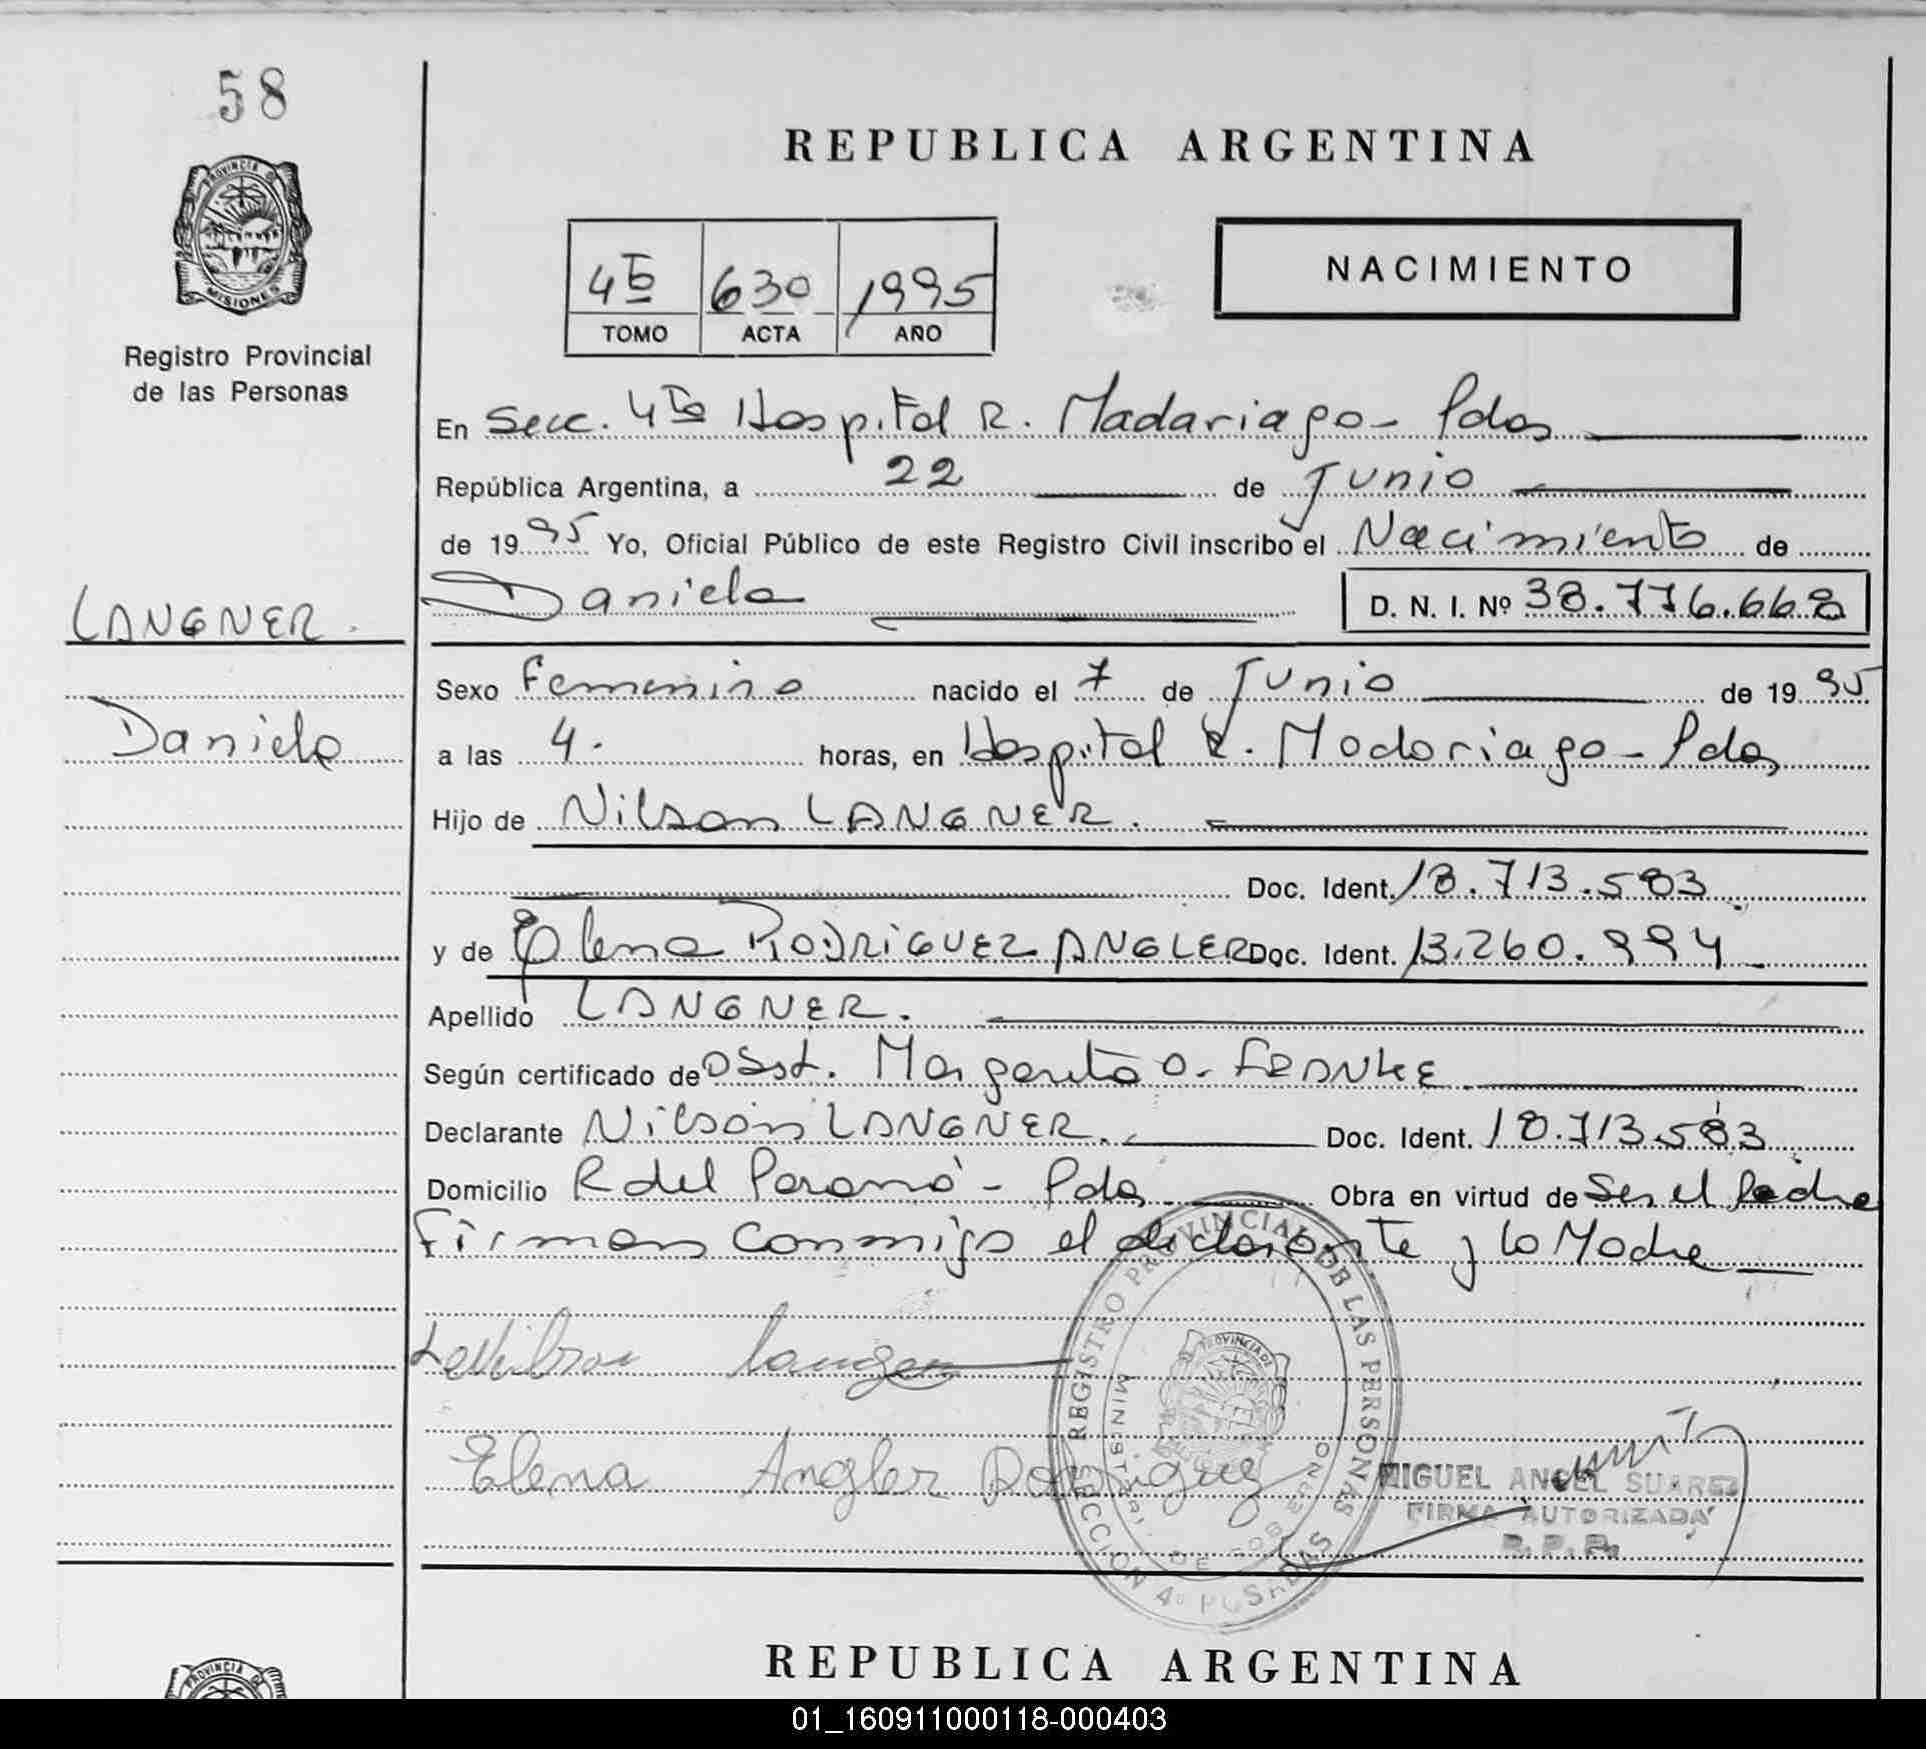 58
PROVINCIA DE
MISIONES
Registro Provincial
de las Personas
LANGNER.
Daniela
REPUBLICA ARGENTINA
4to 630 1995
TOMO ACTA AÑO
NACIMIENTO
En Secc. 4ta Hospital R. Madariaga - Pdas
República Argentina, a 22 de Junio
de 1995 Yo, Oficial Público de este Registro Civil inscribo el Nacimiento de
Daniela D. N. I. Nº 38.776.668
Sexo Femenino nacido el 7 de Junio de 1995
a las 4. horas, en Hospital R. Madariaga - Pdas
Hijo de Nilson LANGNER.
Doc. Ident. 18.713.583
y de Elena RODRIGUEZ ANGLER Doc. Ident. 13.260.994
Apellido LANGNER.
Según certificado de Obst. Margarita O. FRANKE
Declarante Nilson LANGNER. Doc. Ident. 18.713.583
Domicilio R del Paraná - Pdas Obra en virtud de Ser el Padre
Firman conmigo el declarante y la Madre
Elena Angler Rodriguez
REGISTRO PROVINCIAL DE LAS PERSONAS
MINISTERIO DE GOBIERNO
SECCION 4º POSADAS
MIGUEL ANGEL SUAREZ
FIRMA AUTORIZADA
R. P. P.
REPUBLICA ARGENTINA
PROVINCIA DE
01_160911000118-000403